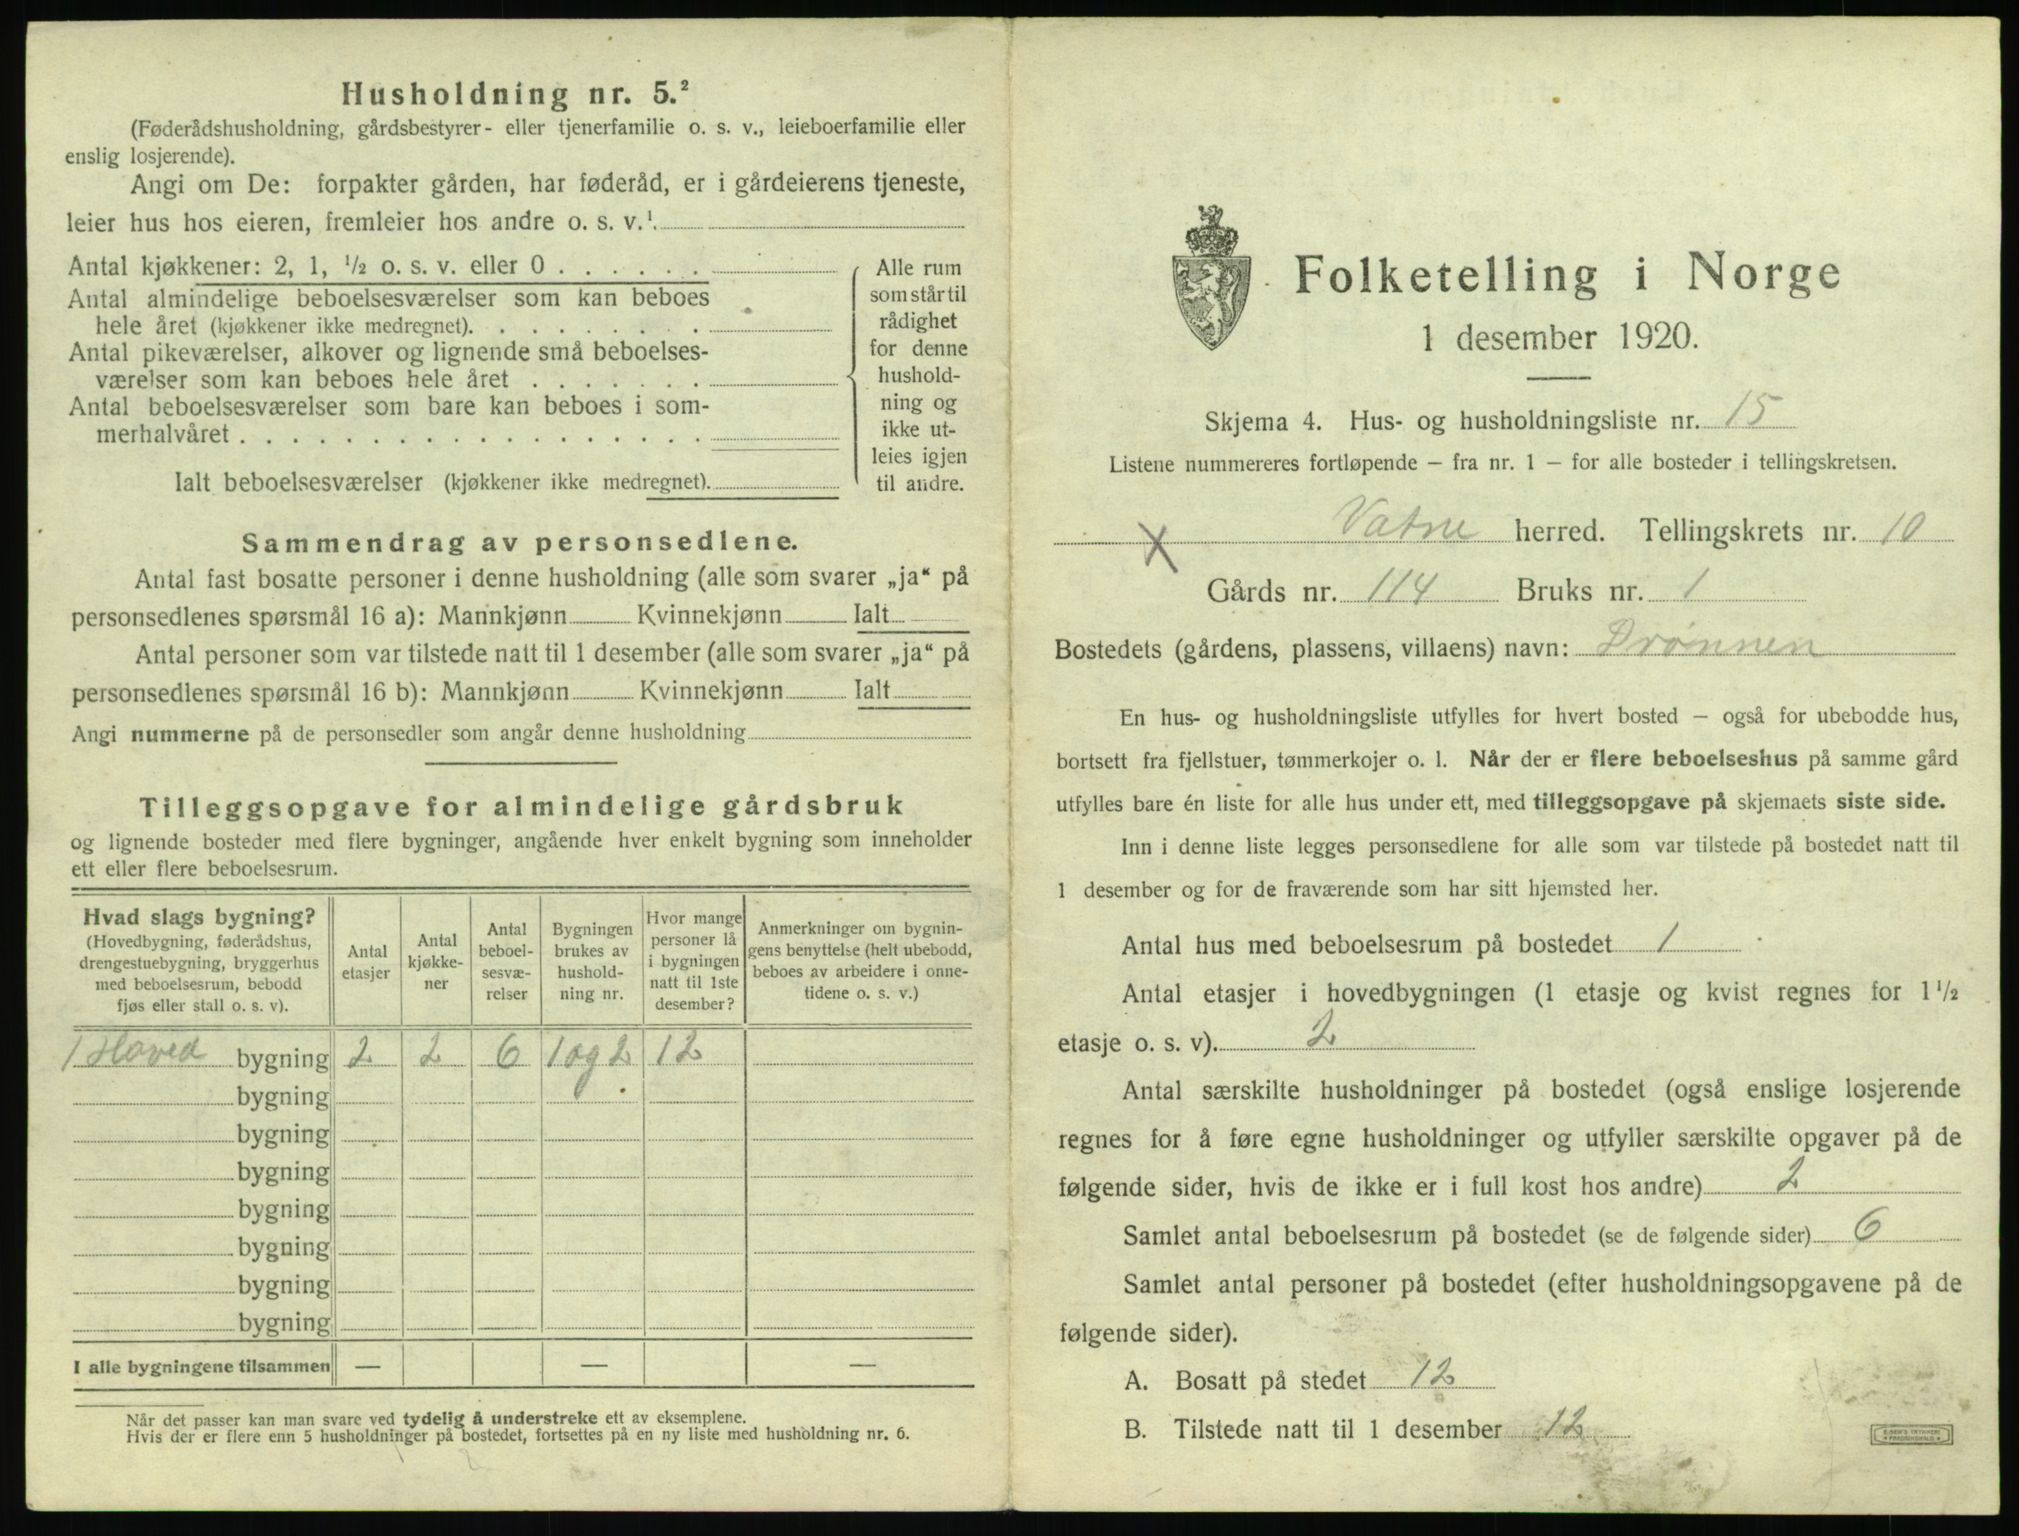 Husholdning nr. 5.²
(Føderådshusholdning, gårdsbestyrer- eller tjenerfamilie o. s. v., leieboerfamilie eller
enslig losjerende).
Angi om De: forpakter gården, har føderåd, er i gårdeierens tjeneste,
leier hus hos eieren, fremleier hos andre o. s. v.¹
Antal kjøkkener: 2, 1, ½ o. s. v. eller 0 . . . . . .
Antal almindelige beboelsesværelser som kan beboes
hele året (kjøkkener ikke medregnet). . . . . . . . .
Antal pikeværelser, alkover og lignende små beboelses-
værelser som kan beboes hele året . . . . . . .
Antal beboelsesværelser som bare kan beboes i som-
merhalvåret . . . . . . . . . . . . . . . . . .
Ialt beboelsesværelser (kjøkkener ikke medregnet).
Alle rum
som står til
rådighet
for denne
hushold-
ning og
ikke ut-
leies igjen
til andre.
Sammendrag av personsedlene.
Antal fast bosatte personer i denne husholdning (alle som svarer „ja“ på
personsedlenes spørsmål 16 a): Mannkjønn Kvinnekjønn Ialt
Antal personer som var tilstede natt til 1 desember (alle som svarer „ja“ på
personsedlenes spørsmål 16 b): Mannkjønn Kvinnekjønn Ialt
Angi nummerne på de personsedler som angår denne husholdning
Tilleggsopgave for almindelige gårdsbruk
og lignende bosteder med flere bygninger, angående hver enkelt bygning som inneholder
ett eller flere beboelsesrum.
Hvad slags bygning?
(Hovedbygning, føderådshus,
drengestuebygning, bryggerhus
med beboelsesrum, bebodd
fjøs eller stall o. s. v).
Antal
etasjer
Antal
kjøkke-
ner
Antal
beboel-
sesvæ-
relser
Bygningen
brukes av
hushold-
ning nr.
Hvor mange
personer lå
i bygningen
natt til 1ste
desember?
Anmerkninger om bygnin-
gens benyttelse (helt ubebodd,
beboes av arbeidere i onne-
tidene o. s. v.)
1 Hoved bygning 2 2 6 1 og 2 12
bygning
bygning
bygning
bygning
bygning
bygning
bygning
I alle bygningene tilsammen — — —
Når det passer kan man svare ved tydelig å understreke ett av eksemplene.
Hvis der er flere enn 5 husholdninger på bostedet, fortsettes på en ny liste med husholdning nr. 6.
1 2
Folketelling i Norge
1 desember 1920.
Skjema 4. Hus- og husholdningsliste nr. 15
Listene nummereres fortløpende – fra nr. 1 – for alle bosteder i tellingskretsen.
X Vatne herred. Tellingskrets nr. 10
Gårds nr. 114 Bruks nr. 1
Bostedets (gårdens, plassens, villaens) navn: Drønnen
En hus- og husholdningsliste utfylles for hvert bosted – også for ubebodde hus,
bortsett fra fjellstuer, tømmerkojer o. l. Når der er flere beboelseshus på samme gård
utfylles bare én liste for alle hus under ett, med tilleggsopgave på skjemaets siste side.
Inn i denne liste legges personsedlene for alle som var tilstede på bostedet natt til
1 desember og for de fraværende som har sitt hjemsted her.
Antal hus med beboelsesrum på bostedet 1
Antal etasjer i hovedbygningen (1 etasje og kvist regnes for 1½
etasje o. s. v). 2
Antal særskilte husholdninger på bostedet (også enslige losjerende
regnes for å føre egne husholdninger og utfyller særskilte opgaver på de
følgende sider, hvis de ikke er i full kost hos andre) 2
Samlet antal beboelsesrum på bostedet (se de følgende sider) 6
Samlet antal personer på bostedet (efter husholdningsopgavene på de
følgende sider).
A. Bosatt på stedet 12
B. Tilstede natt til 1 desember 12